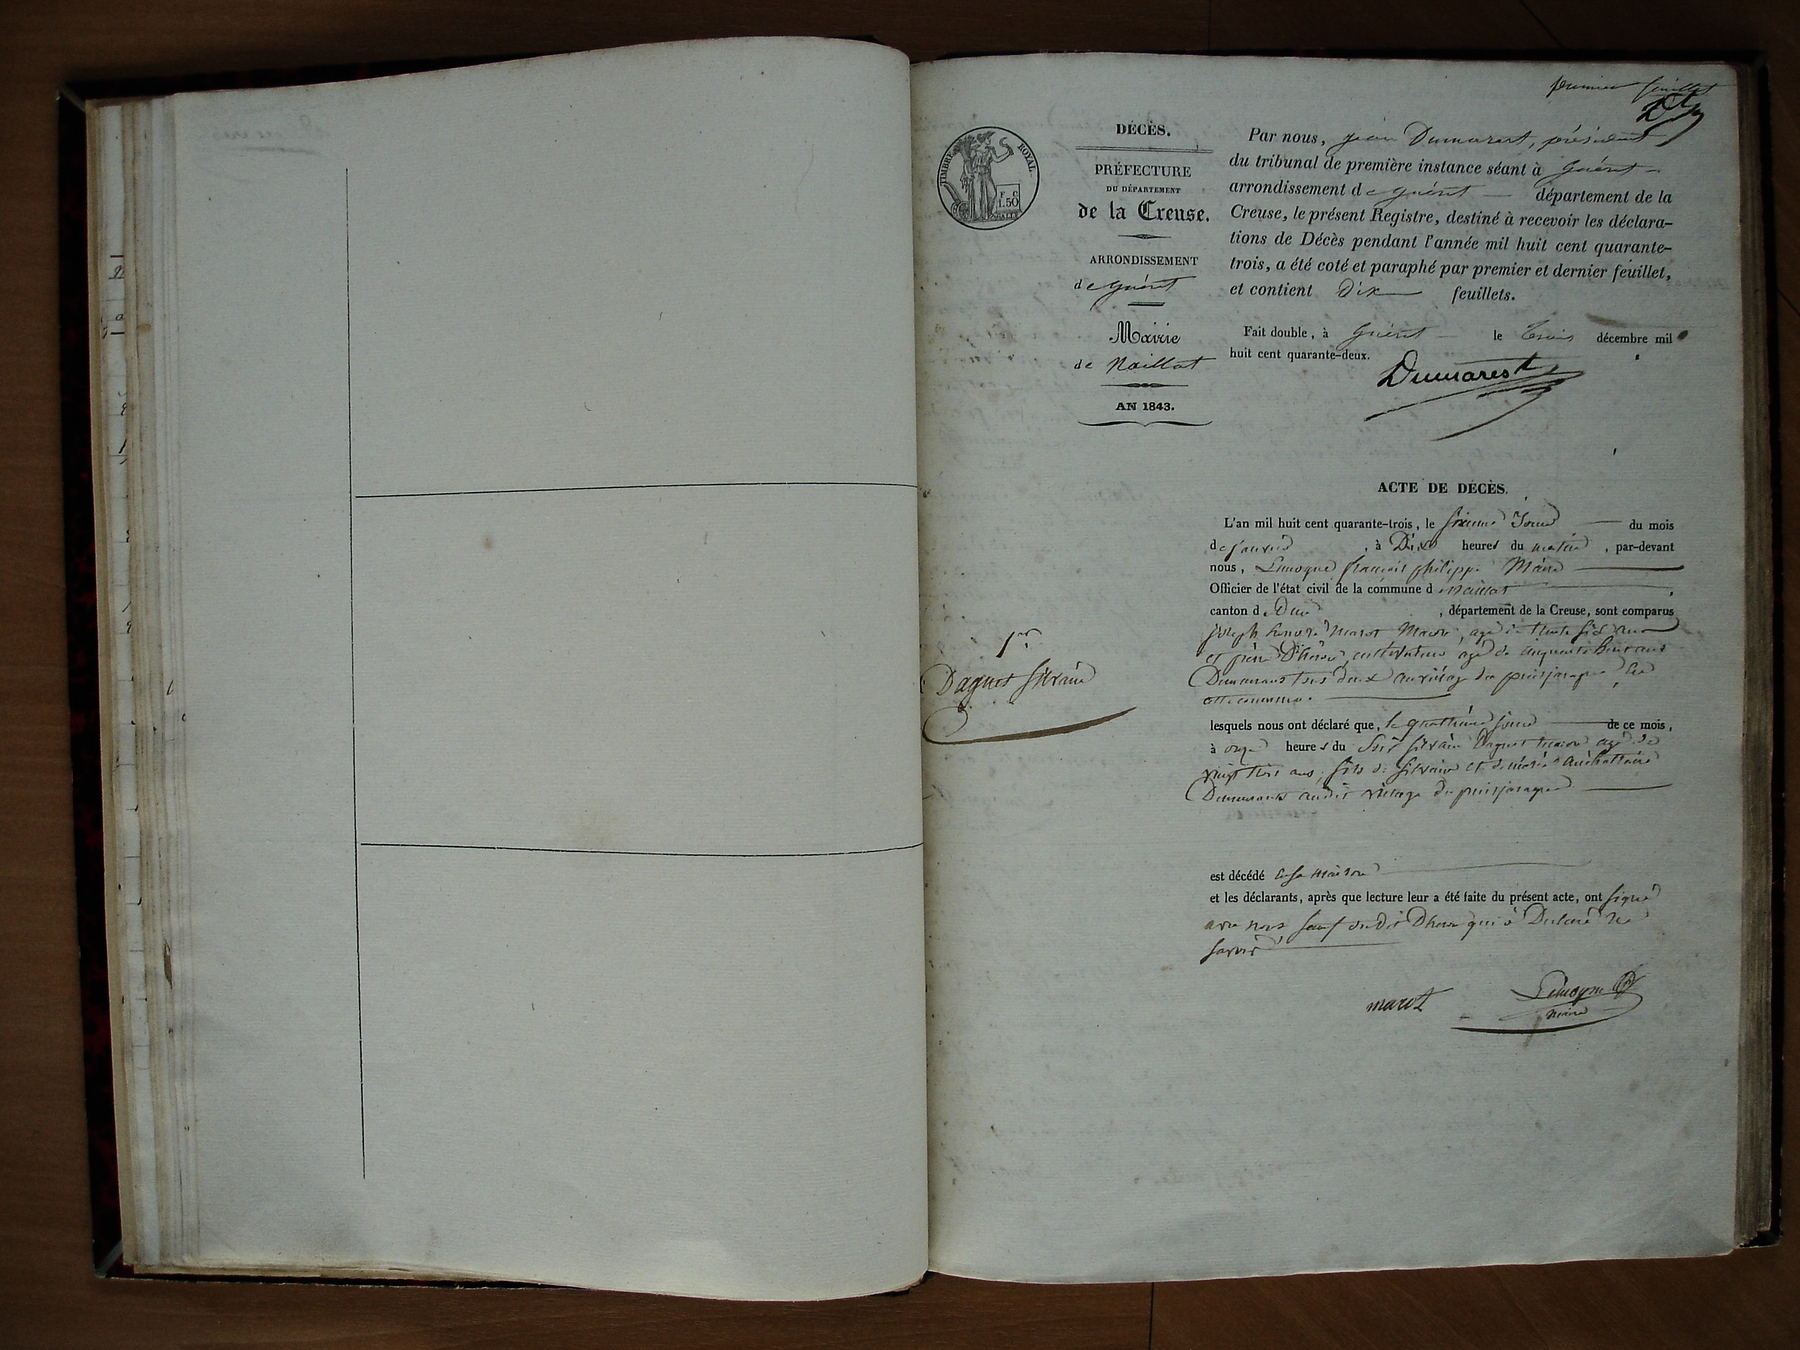 premier feuillet
TIMBRE ROYAL
F. C
1.50
DÉCÈS.
PRÉFECTURE
DU DÉPARTEMENT
de la Creuse.
ARRONDISSEMENT
de Guéret
Mairie
de Naillat
AN 1843.
Par nous, jean Dumarest, président
du tribunal de première instance séant à Guéret
arrondissement de Guéret département de la
Creuse, le présent Registre, destiné à recevoir les déclara-
tions de Décès pendant l'année mil huit cent quarante-
trois, a été coté et paraphé par premier et dernier feuillet,
et contient dix feuillets.
Fait double, à Guéret le trois décembre mil
huit cent quarante-deux.
Dumarest
1er
Dagnet Silvain
ACTE DE DÉCÈS.
L'an mil huit cent quarante-trois, le sixieme Jour du mois
de janvier, à Dix heures du matin, par-devant
nous, françois philippe Maire
Officier de l'état civil de la commune de Naillat,
canton de Dun, département de la Creuse, sont comparus
joseph Marot Macon, agé de trente six ans
et pierre Dhéron, cultivateur agé de cinquante huit ans
Demeurans tous deux au village du puisjaraque, de
cette commune.
lesquels nous ont déclaré que, le quatrieme jour de ce mois,
à onze heures du Soir Silvain Dagnet macon agé de
vingt trois ans, fils de Silvain et de marie
Demeurants audit village du puisjaraque
est décédé en sa maison
et les déclarants, après que lecture leur a été faite du présent acte, ont signé
avec nous sauf Dhéron qui a Declaré ne
savoir
marot
Lémoyne
Maire